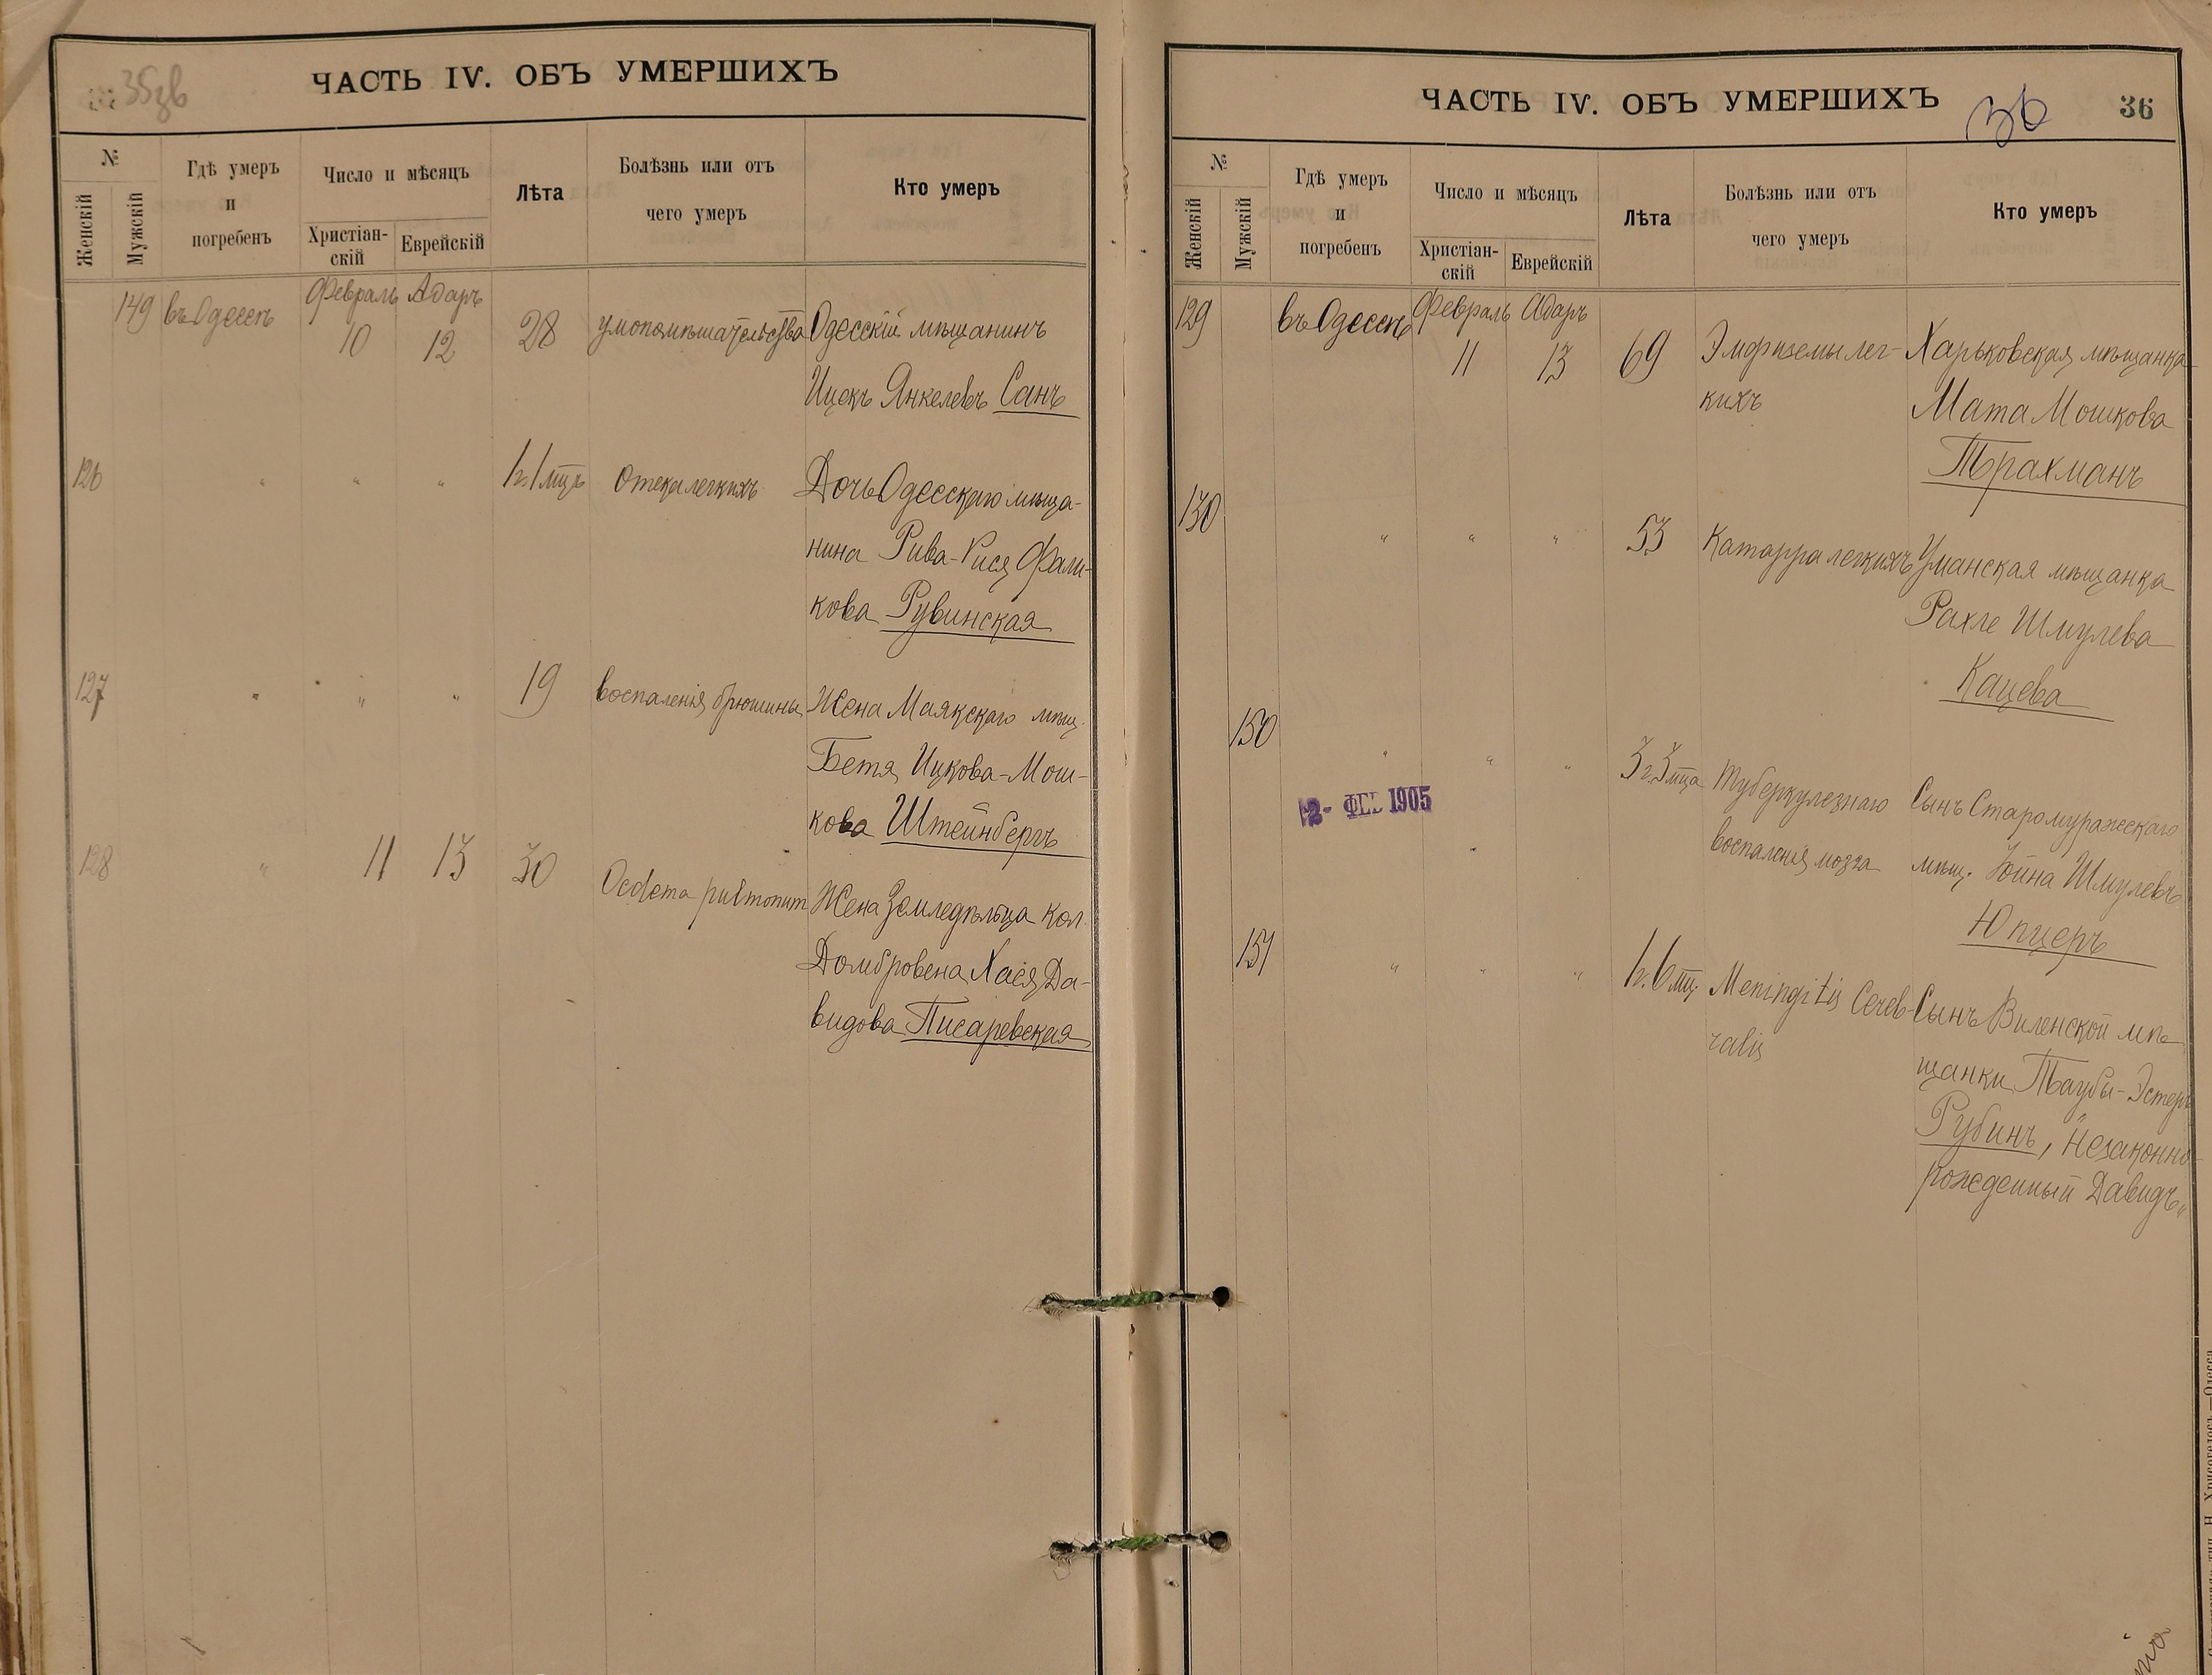 35зв
ЧАСТЬ IV. ОБЪ УМЕРШИХЪ
№
Женскій
Мужскій
Гдѣ умеръ
и
погребенъ
Число и мѣсяцъ
Христіан-
скій
Еврейскій
Лѣта
Болѣзнь или отъ
чего умеръ
Кто умеръ
149 въ Одессѣ Февраль 10 Адаръ 12 28 умопомѣшательства Одесскій мѣщанинъ
Ицекъ Янкелевъ Санъ
126 " " " 1г. 1 мцъ Отека легкихъ Дочь Одесскаго мѣща-
нина Рива-Рися Фали-
кова Рувинская
127 " " " 19 воспаленія брюшины Жена Маякскаго мѣщ.
Бетя Ицкова-Мош-
кова Штейнбергъ
128 " 11 13 30 Oedema pulmonum Жена Земледѣльца кол.
Домбровена Хася Да-
видова Писаревская
ЧАСТЬ IV. ОБЪ УМЕРШИХЪ
36
36
№
Женскій
Мужскій
Гдѣ умеръ
и
погребенъ
Число и мѣсяцъ
Христіан-
скій
Еврейскій
Лѣта
Болѣзнь или отъ
чего умеръ
Кто умеръ
129 въ Одессѣ Февраль 11 Адаръ 13 69 Эмфиземы лег- Харьковская мѣщанка
кихъ Мата Мошкова
Трахманъ
130 " " " 53 Катарра легкихъ Уманская мѣщанка
Рахле Шмулева
Кацева
150 " " " 3г. 3 мца Туберкулезнаго Сынъ Старомуражескаго
12 - ФЕВ 1905
воспаленія мозга мѣщ. Іойна Шмулевъ
Юпцеръ
151 " " " 1г. 6 мц. Meningitis Cereb- Сынъ Виленской мѣ-
ralis щанки Таубы-Эстеръ
Рубинъ, "Незаконно-
рожденный Давидъ"
тип. Н. Хрисогелосъ.—Одесса